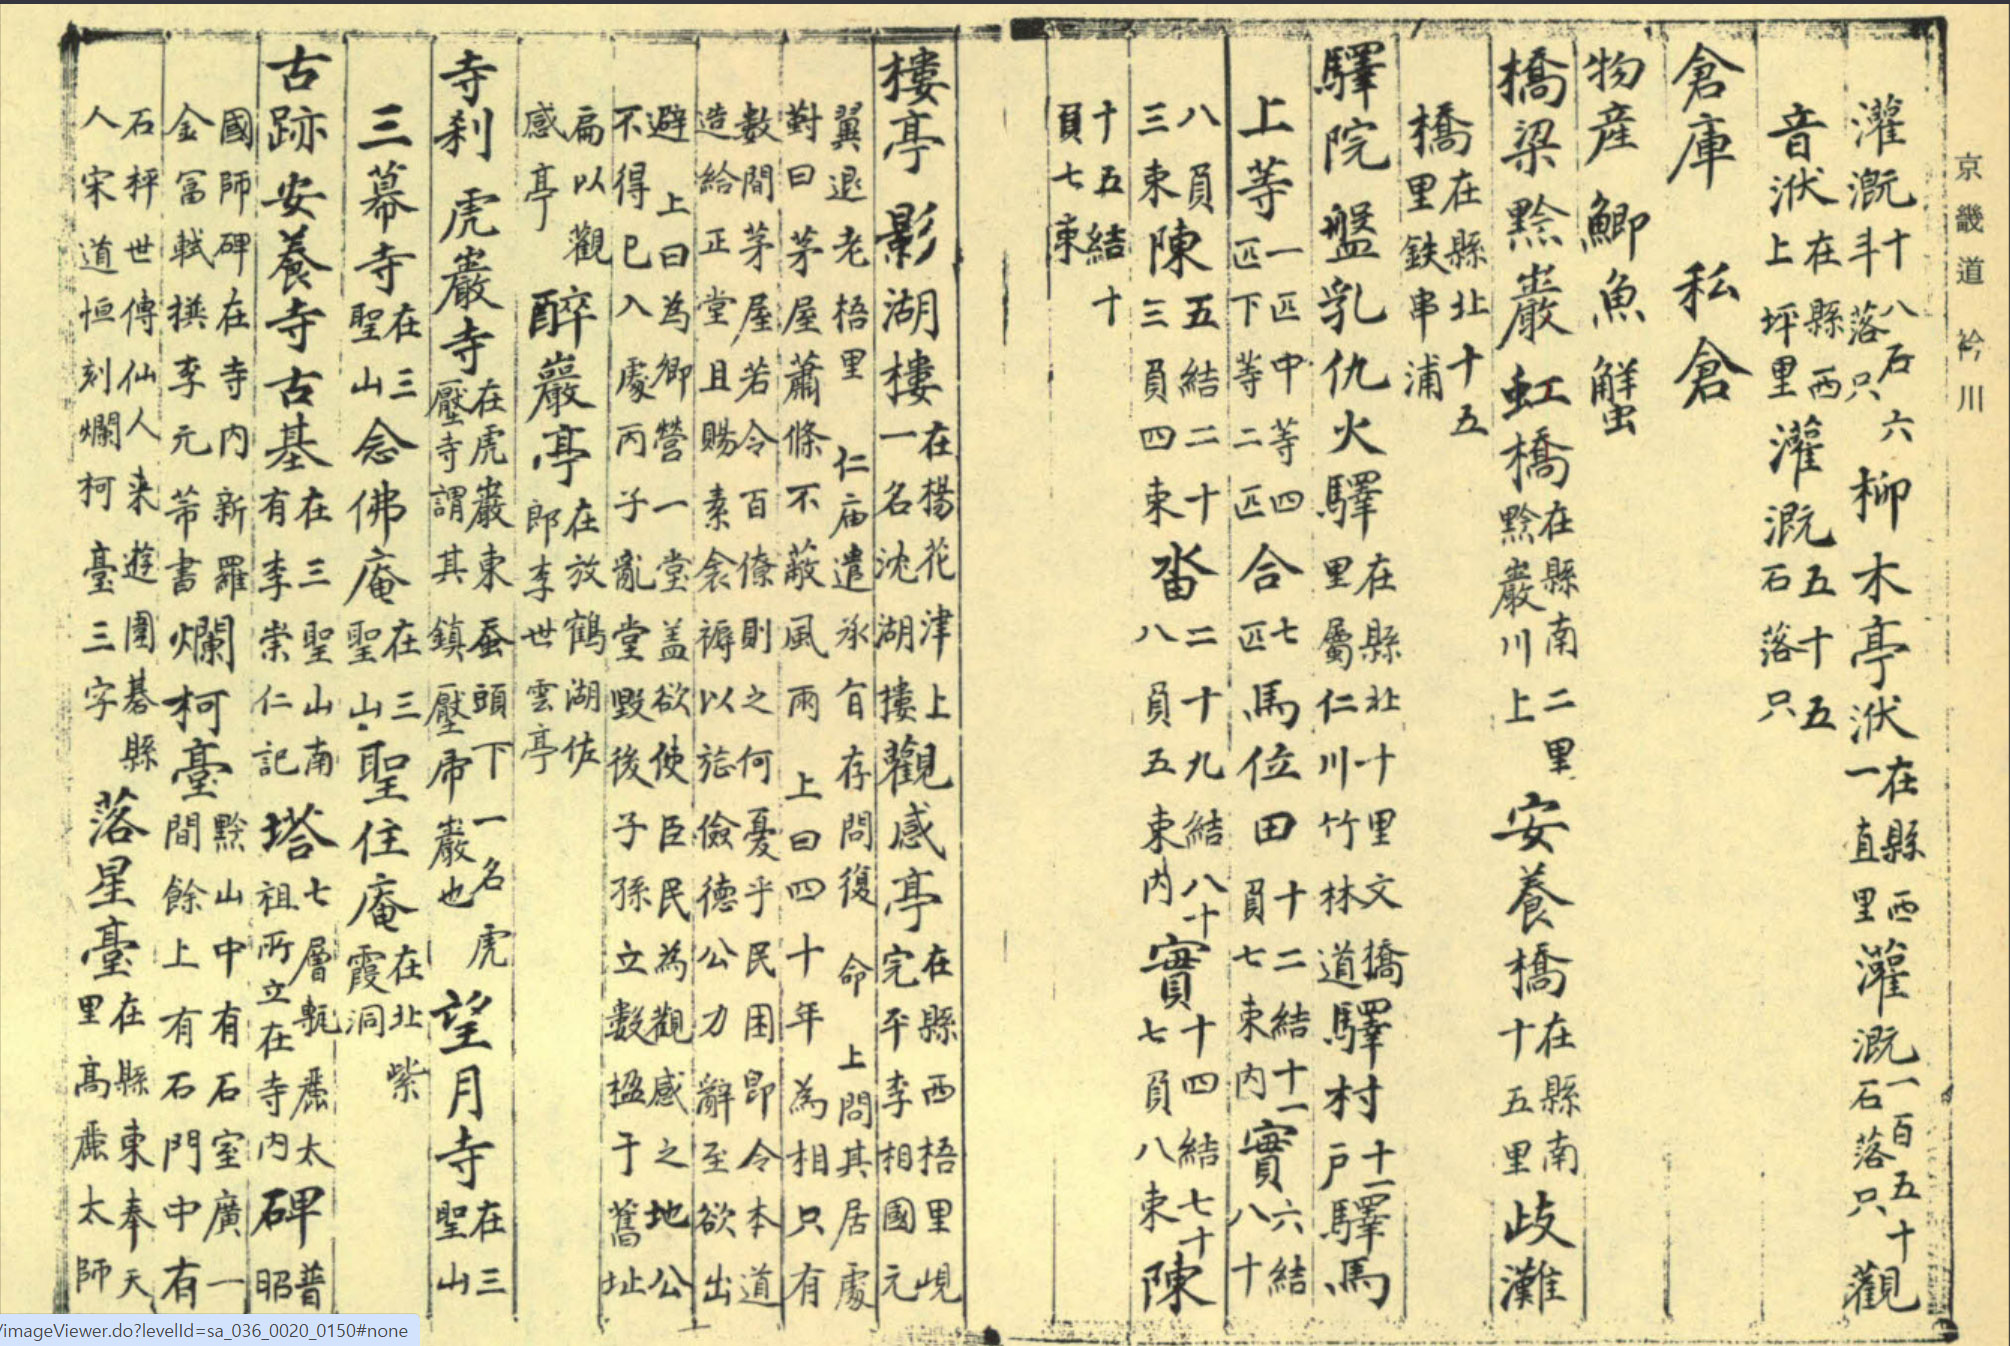 京畿道 衿川
灌漑十八石六斗落只柳木亭洑在縣西一直里灌漑一百五十石落只觀
音洑在縣西上坪里灌漑五十五石落只
倉庫 私倉
物産 鯽魚 蟹
橋梁 黔巖虹橋在縣南二里黔巖川上安養橋在縣南十五里歧灘
橋在縣北十五里鉄串浦
驛院 盤乳仇火驛在縣北十里文橋里屬仁川竹林道驛村十一戶驛馬
上等一匹中等四匹下等二匹合七匹馬位田十二結十一負七束內實六結八十
八負三束陳五結二十三負四束畓二十九結八十八負五束內實十四結七十七負八束陳
十五結十負七束
樓亭 影湖樓在楊花津上一名沈湖樓觀感亭在縣西梧里峴完平李相國元
翼退老梧里 仁庙遣承旨存問復 命 上問其居處對曰茅屋蕭條不蔽風雨 上曰四十年為相只有
數間茅屋若令百僚則之何憂乎民困卽令本道造給正堂且賜素衾褥以旌儉德公力辭至欲出
避 上曰為卿營一堂盖欲使臣民為觀感之地公不得已入處丙子亂堂毀後子孫立數楹于舊址
扁以觀感亭 醉巖亭在放鶴湖佐郎李世雲亭
寺刹 虎巖寺在虎巖東蚕頭下一名虎壓寺謂其鎮壓帍巖也望月寺在三聖山
三幕寺在三聖山念佛庵在三聖山聖住庵在北紫霞洞
古跡 安養寺古基在三聖山南有李崇仁記塔七層甎麗太祖所立在寺內碑普昭
國師碑在寺內新羅金富軾撰李元苐書爛柯臺黔山中有石室廣一間餘上有石門中有
石枰世傳仙人来遊圍碁縣人宋道恒刻爛柯臺三字落星臺在縣東奉天里高麗太師
/imageViewer.do?levelId=sa_036_0020_0150#none